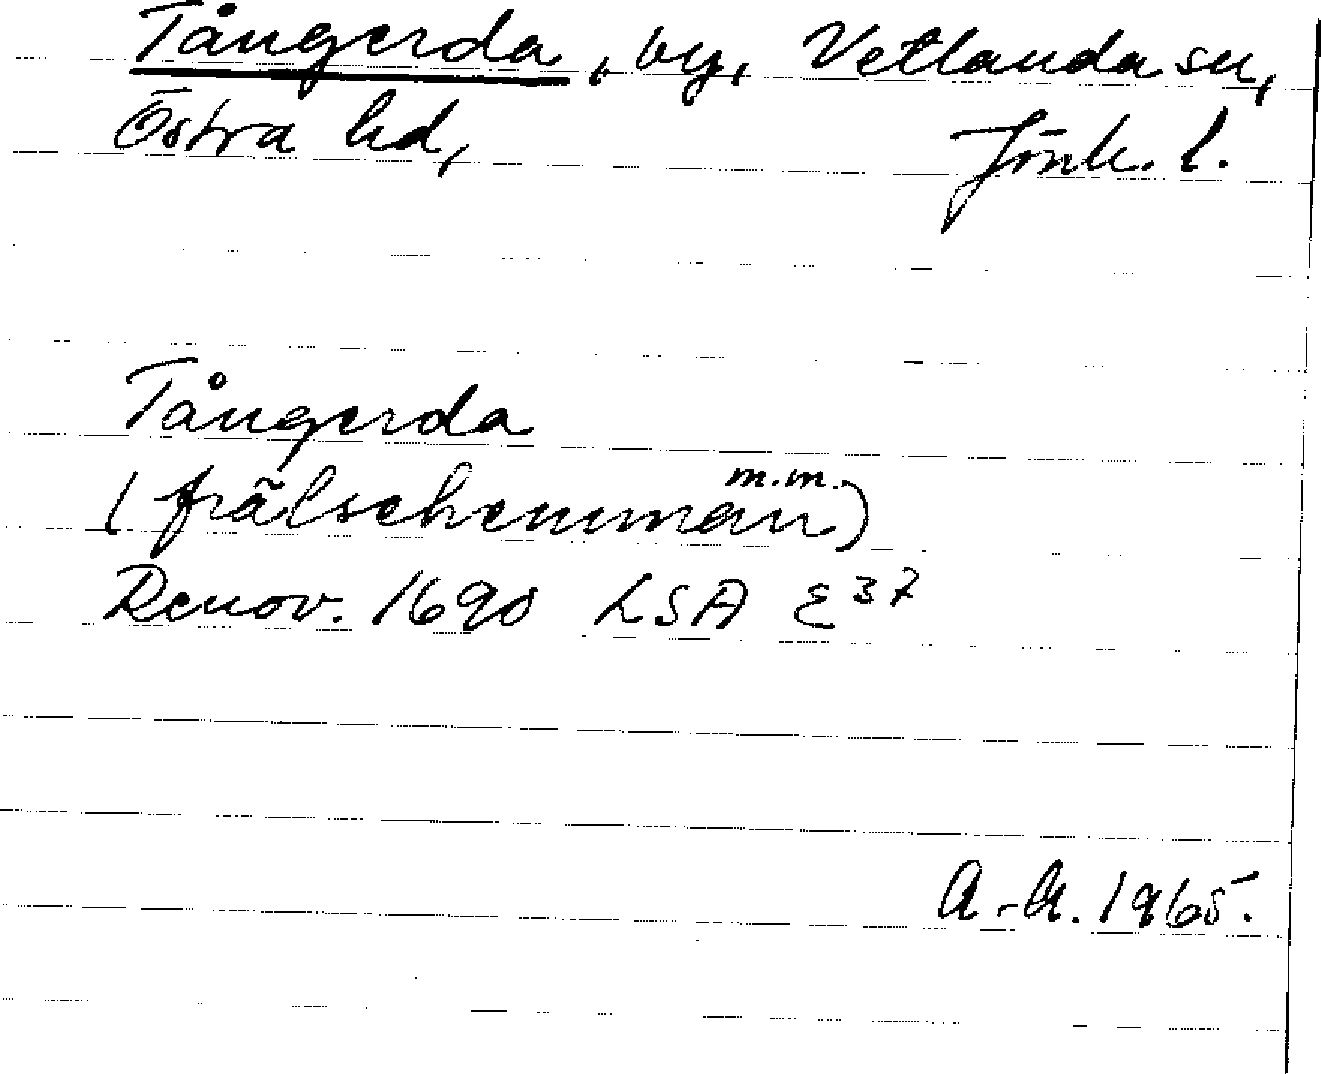 Tångerda, by, Vetlanda sn,
Östra hd, Jönk. l.
Tångerda
(frälsehemman m.m.)
Renov. 1690 LSA E 37
1965.